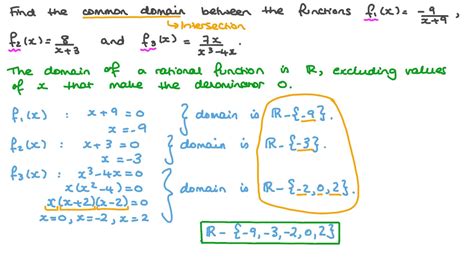 Find the common domain between the functions f₁(x) = -9/(x+9),
↳ Intersection
f₂(x) = 8/(x+3) and f₃(x) = 7x/(x³-4x).
The domain of a rational function is ℝ, excluding values
of x that make the denominator 0.
f₁(x) : x+9=0 } domain is ℝ-{-9}.
x=-9
f₂(x) : x+3=0 } domain is ℝ-{-3}.
x=-3
f₃(x) : x³-4x=0
x(x²-4)=0 } domain is ℝ-{-2,0,2}.
x(x+2)(x-2)=0
x=0, x=-2, x=2
ℝ-{-9,-3,-2,0,2}